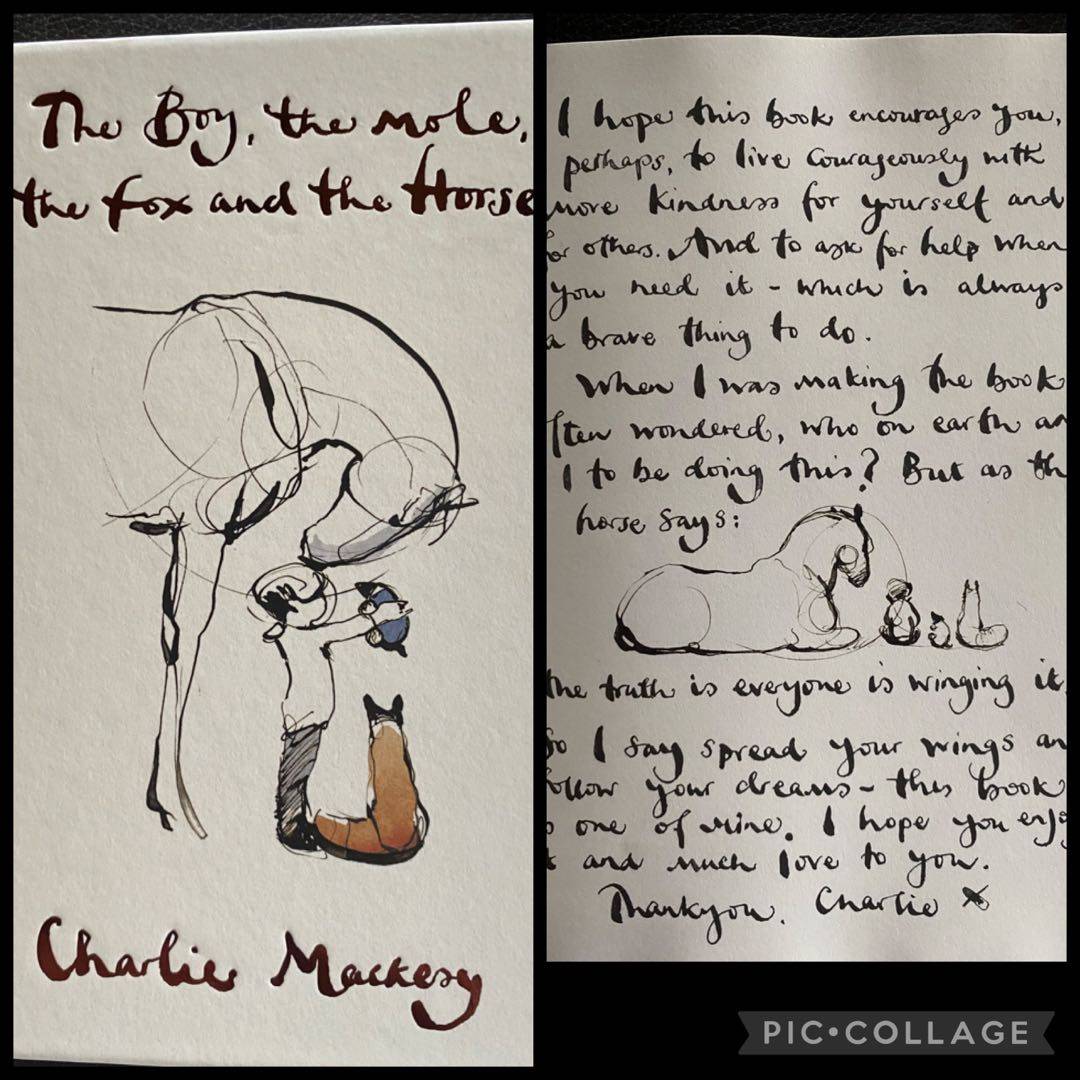 The Boy, the mole,
the fox and the Horse
Charlie Mackesy
I hope this book encourages you,
perhaps, to live courageously with
more kindness for yourself and
for others. And to ask for help when
you need it - which is always
a brave thing to do.
When I was making the book
ften wondered, who on earth am
I to be doing this? But as th
horse says:
the truth is everyone is winging it.
So I say spread your wings an
follow your dreams - this book
one of mine. I hope you enjo
and much love to you.
Thankyou. Charlie x
PIC•COLLAGE